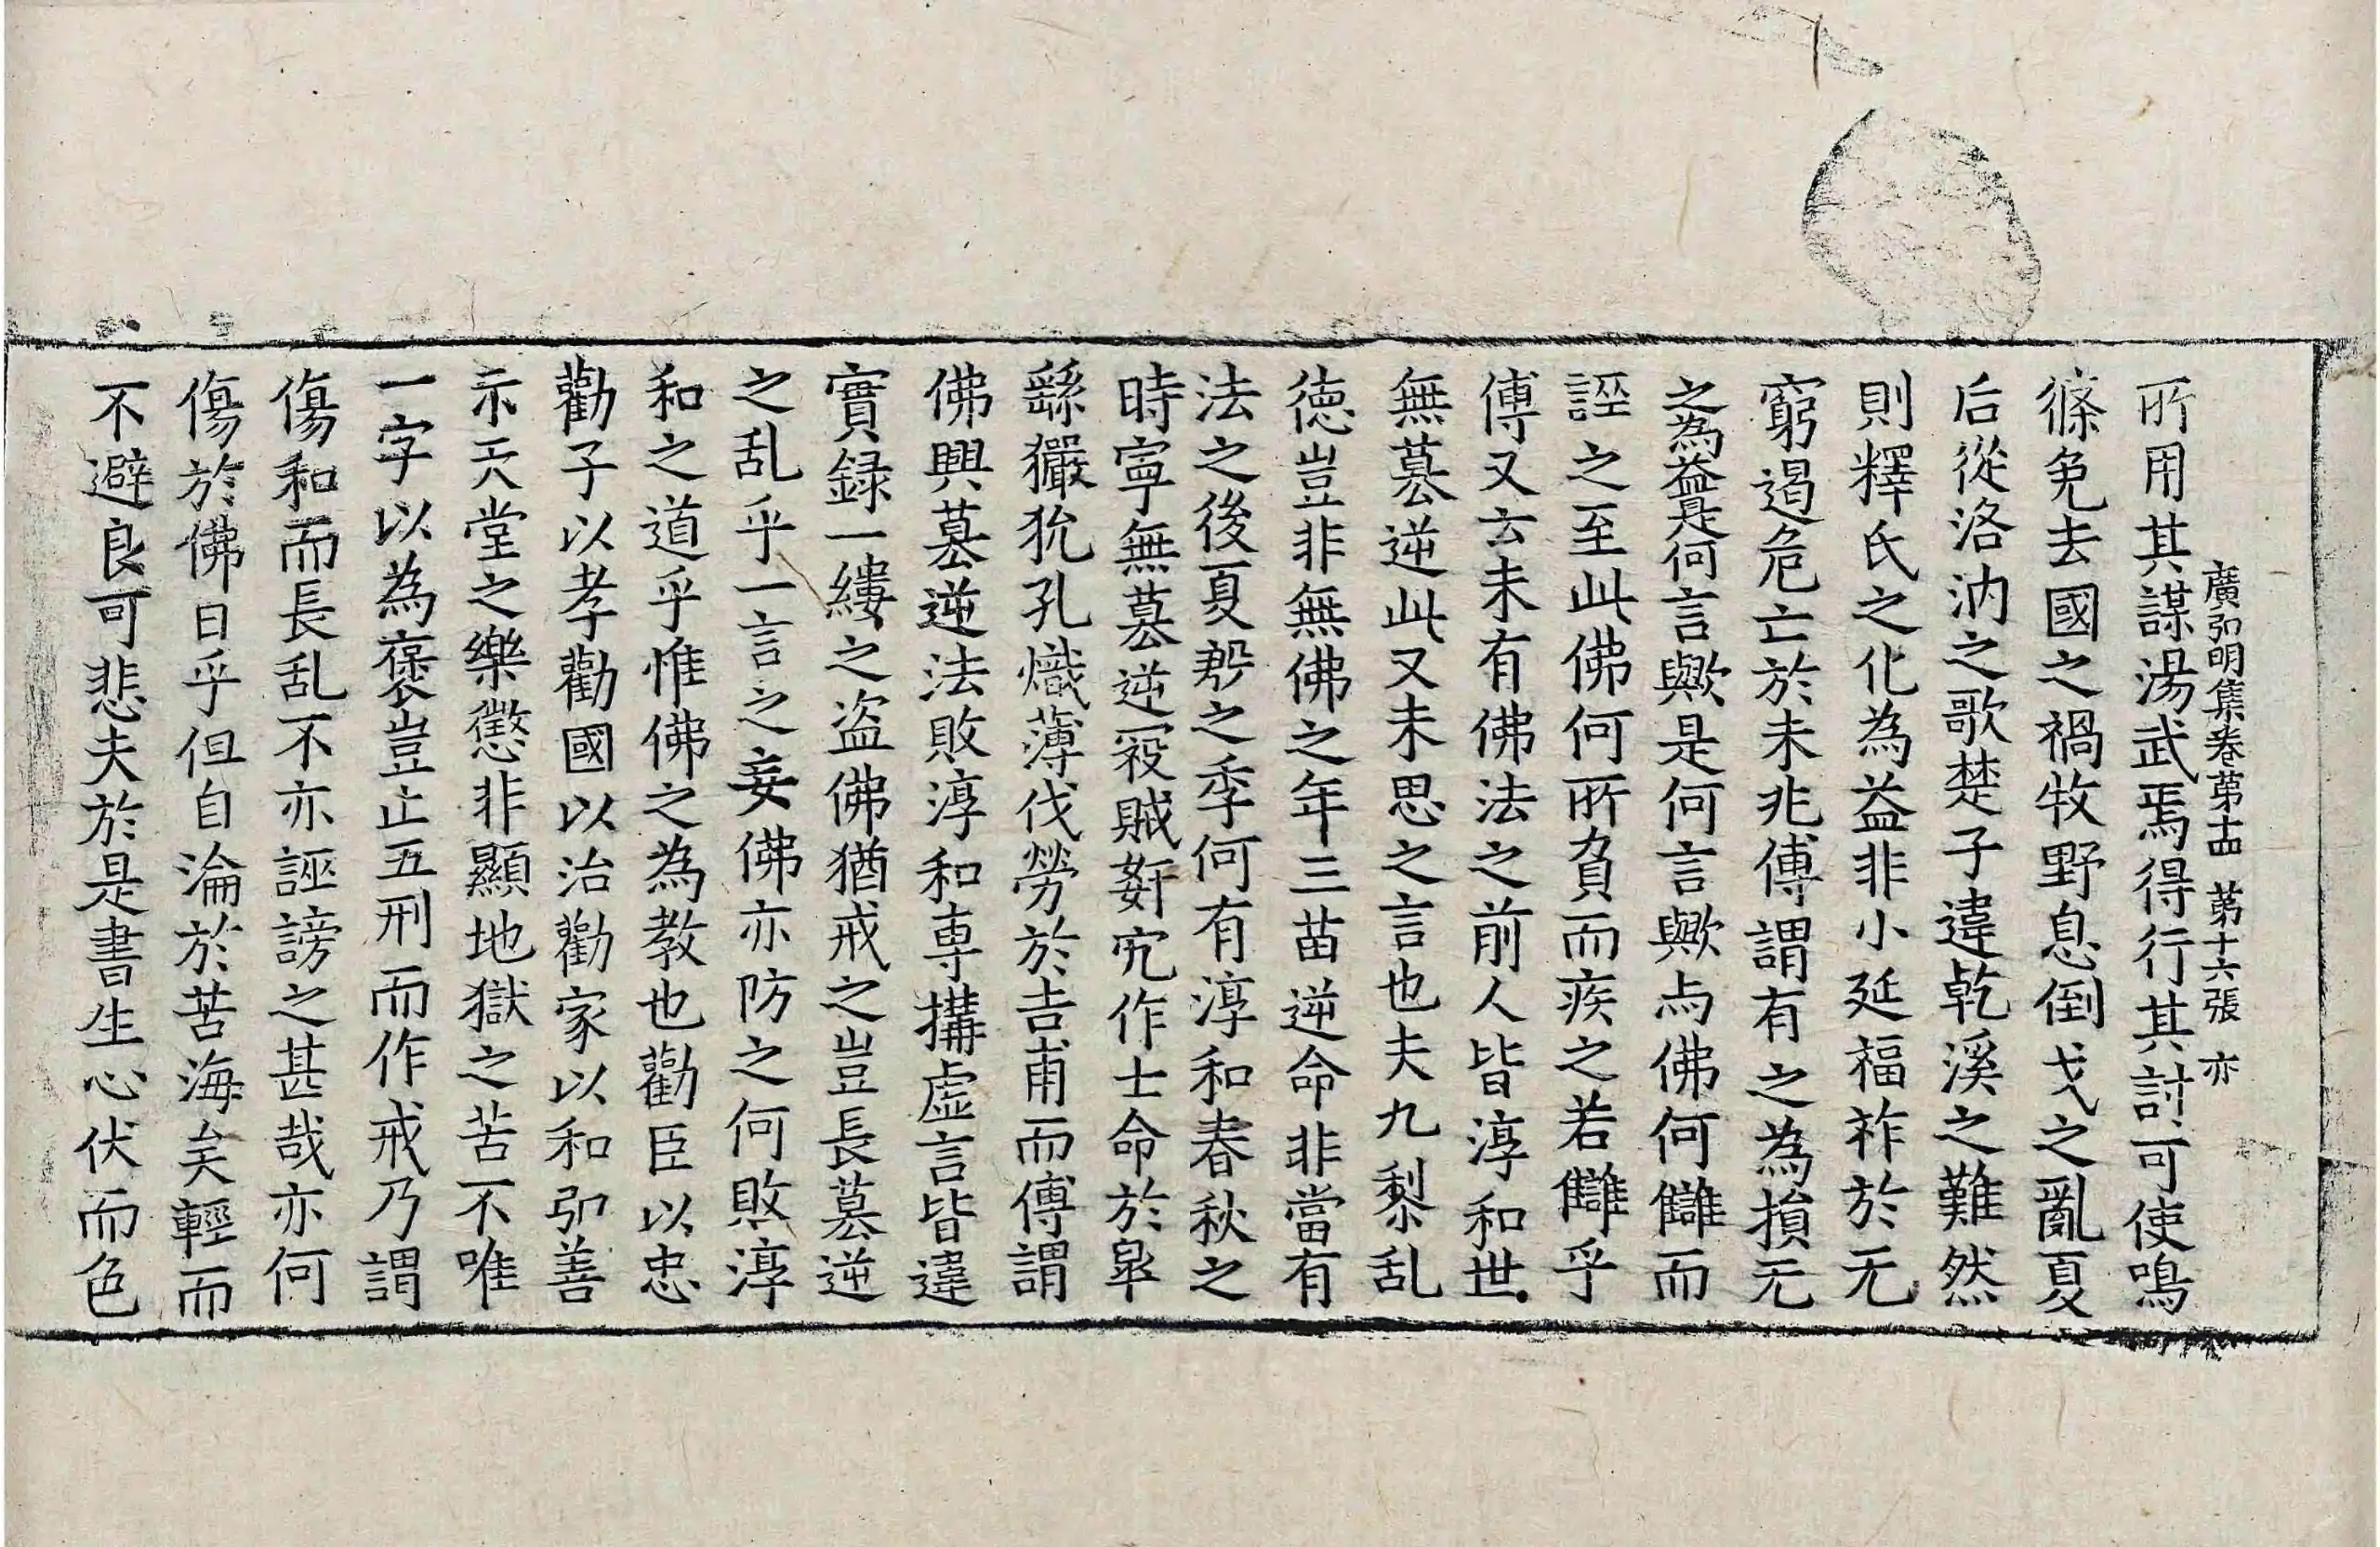 廣弘明集卷第十四 第十六張 亦
所用其謀湯武焉得行其討可使鳴
條免去國之禍牧野息倒戈之亂夏
后從洛汭之歌楚子違乾溪之難然
則釋氏之化為益非小延福祚於无
窮遏危亡於未兆傅謂有之為損无
之為益是何言歟是何言歟与佛何讎而
誣之至此佛何所負而疾之若讎乎
傅又云未有佛法之前人皆淳和世
無篡逆此又未思之言也夫九黎乱
德豈非無佛之年三苗逆命非當有
法之後夏殷之季何有淳和春秋之
時寧無篡逆寇賊姧宄作士命於皐
繇玁狁孔熾薄伐勞於吉甫而傅謂
佛興篡逆法敗淳和專搆虛言皆違
實録一縷之盜佛猶戒之豈長篡逆
之乱乎一言之妄佛亦防之何敗淳
和之道乎惟佛之為教也勸臣以忠
勸子以孝勸國以治勸家以和弘善
示天堂之樂懲非顯地獄之苦不唯
一字以為褒豈止五刑而作戒乃謂
傷和而長乱不亦誣謗之甚哉亦何
傷於佛日乎但自淪於苦海矣輕而
不避良可悲夫於是書生心伏而色